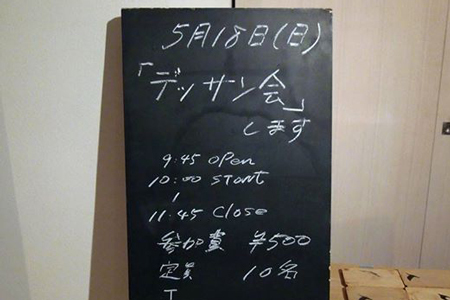 5月18日(日)
「デッサン会」
します
9:45 open
10:00 START
11:45 close
参加費 ¥500
定員 10名